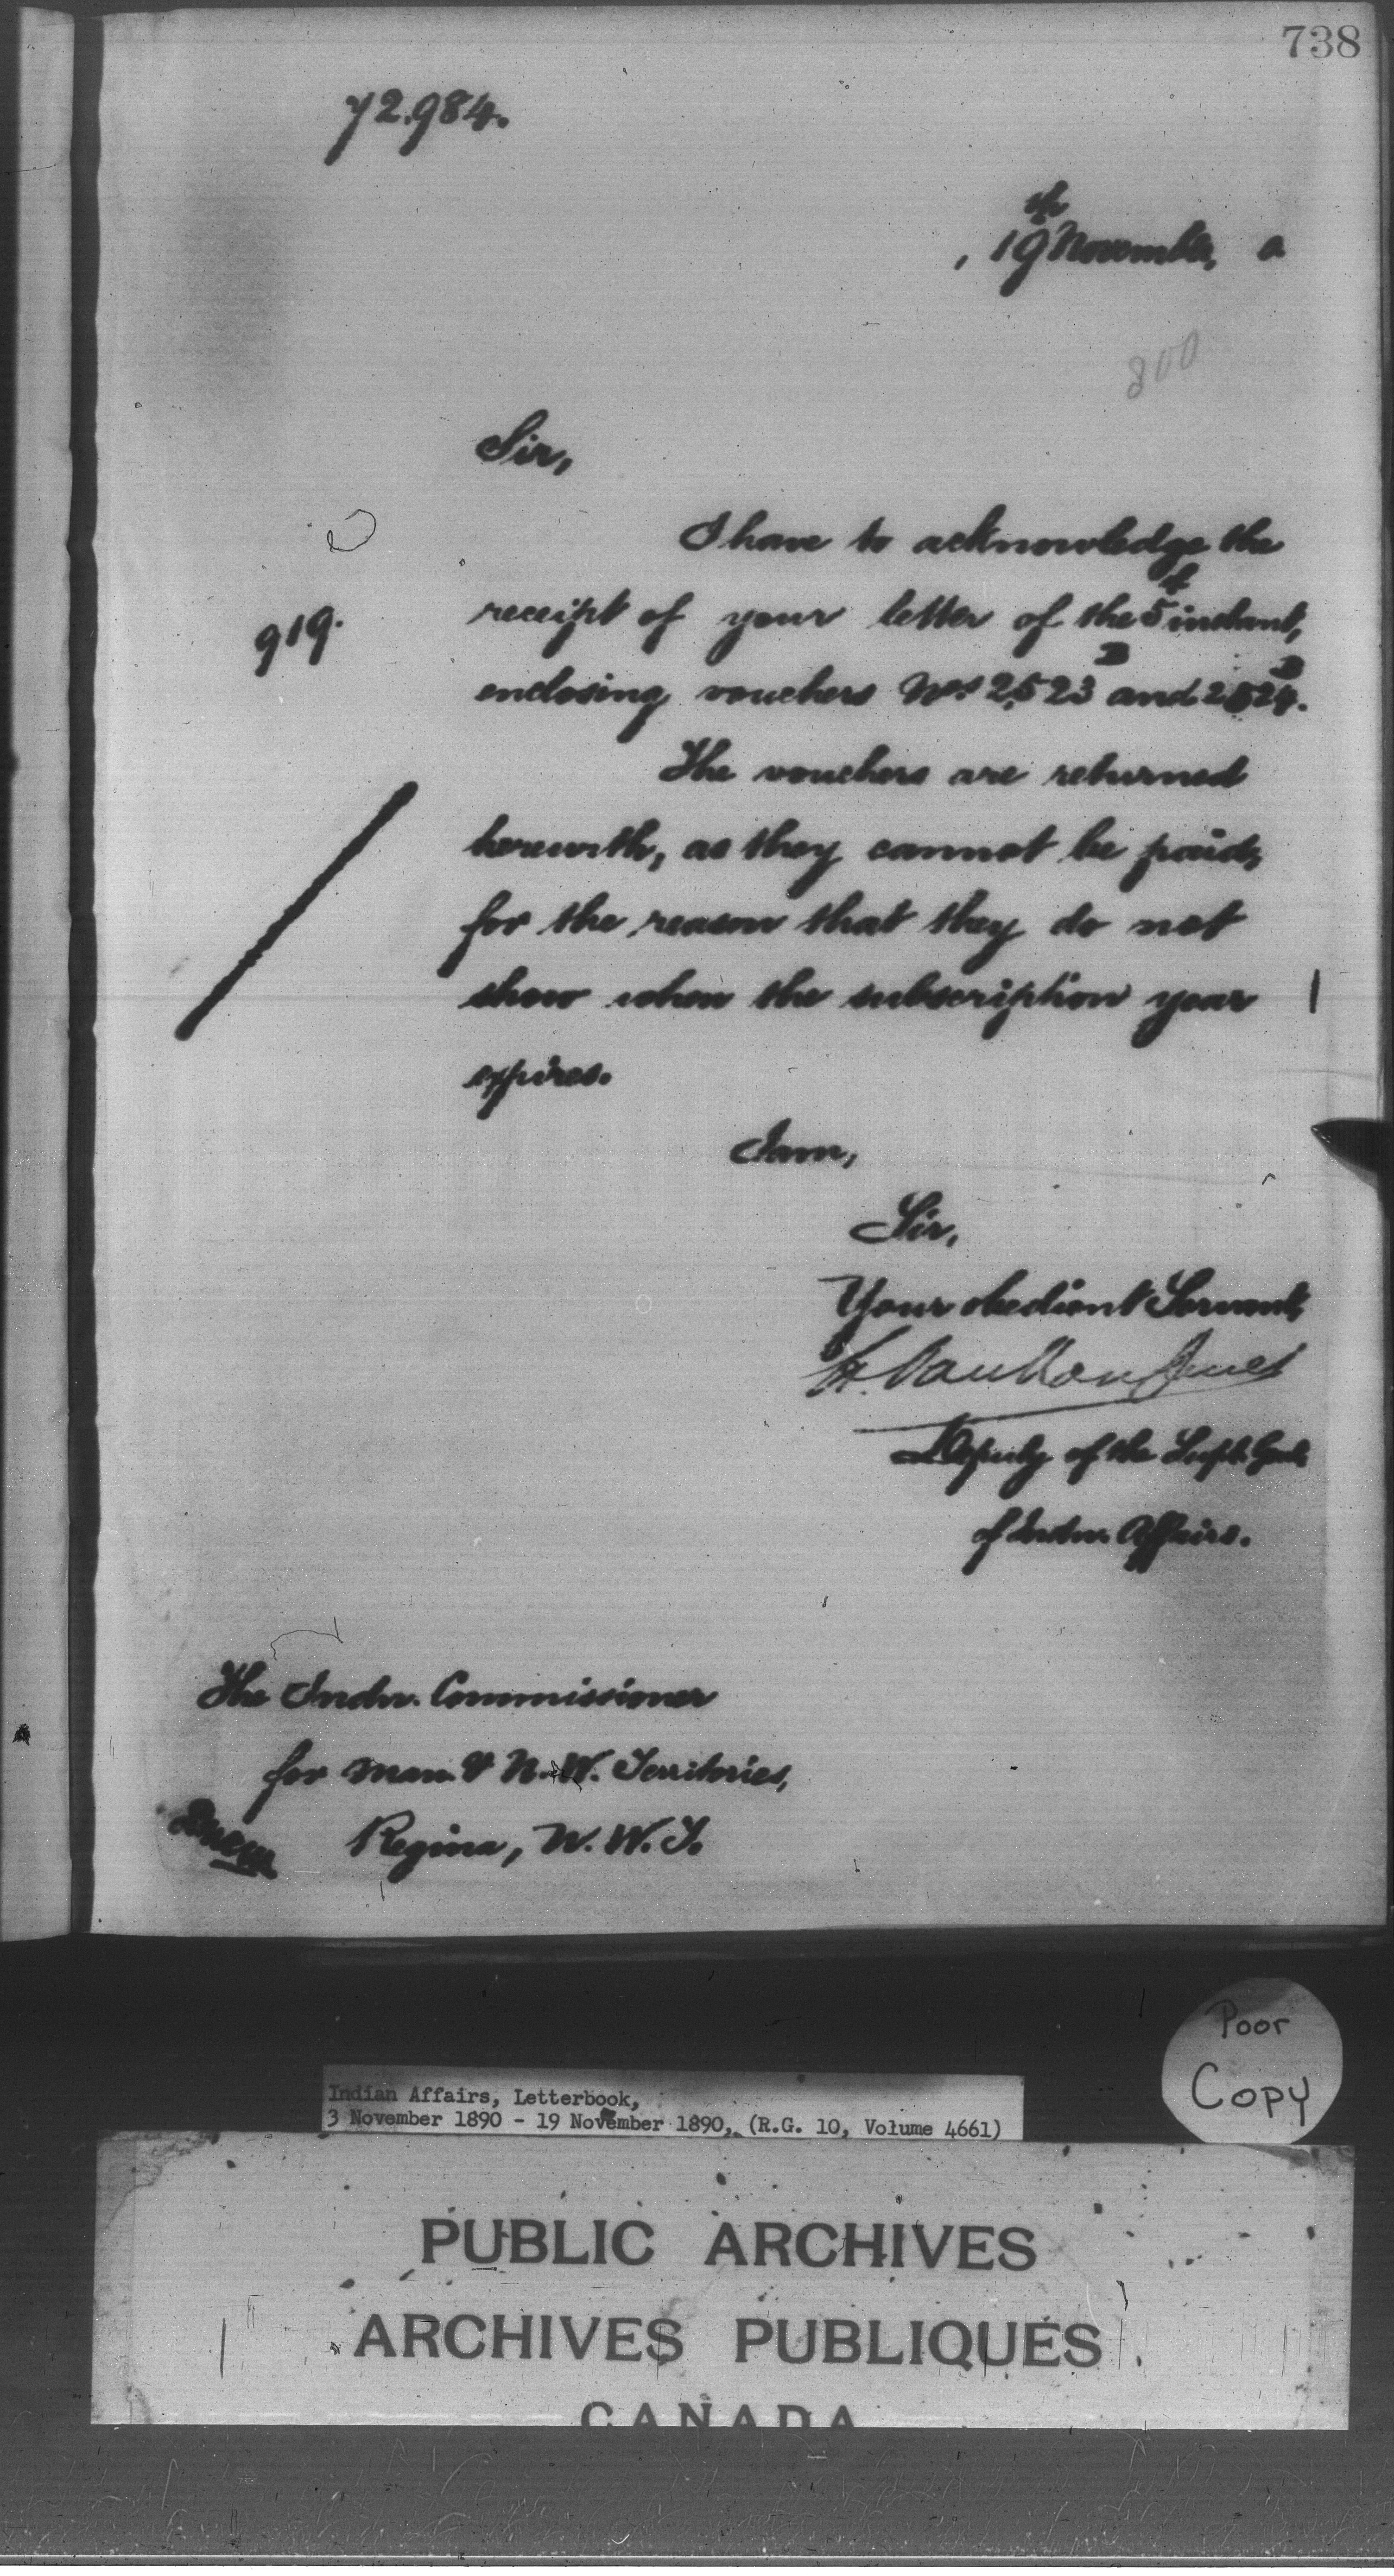 738
72.984.
th
, 19 November, 0
300
Sir,
I have to acknowledge the
919. receipt of your letter of the 5th instant,
enclosing vouchers Nos 2523 B and 2524 B.
The vouchers are returned
herewith, as they cannot be paid,
for the reason that they do not
show when the subscription year
expires.
I am,
Sir,
Your obedient Servant,
L. VanKoughnet
Deputy of the Supt. Genl.
of Indn. Affairs.
The Indn. Commissioner
for Man. & N.W. Territories,
Regina, N.W.T.
Poor
Copy
Indian Affairs, Letterbook,
3 November 1890 - 19 November 1890, (R.G. 10, Volume 4661)
PUBLIC ARCHIVES
ARCHIVES PUBLIQUES
CANADA